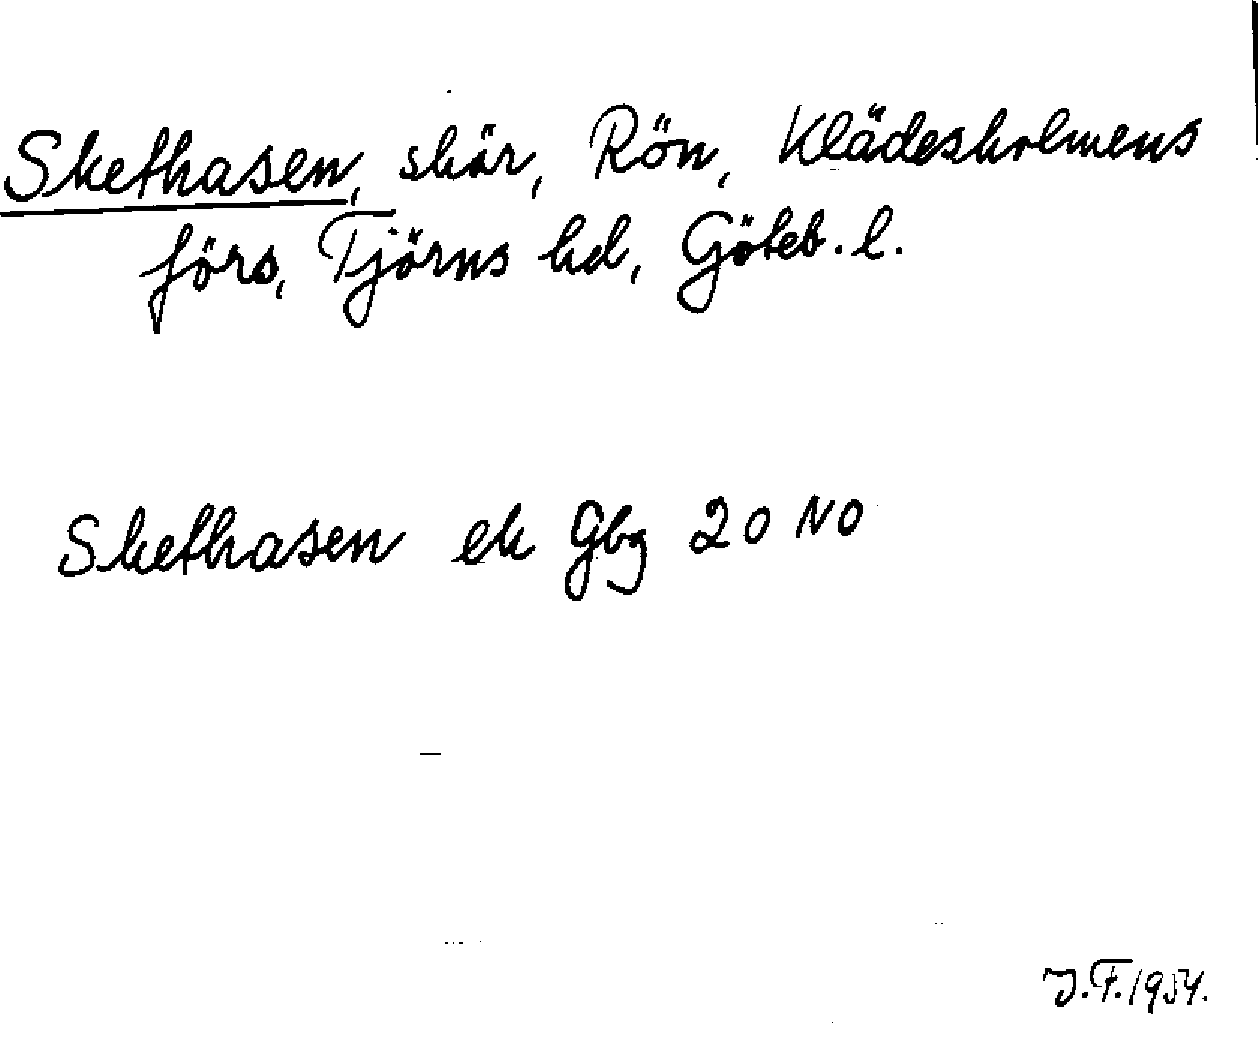 Skethasen, skär, Rön, Klädesholmens
förs, Tjörns hd, Göteb. l.
Skethasen ek Gbg 20 NO
J.F. 1954.